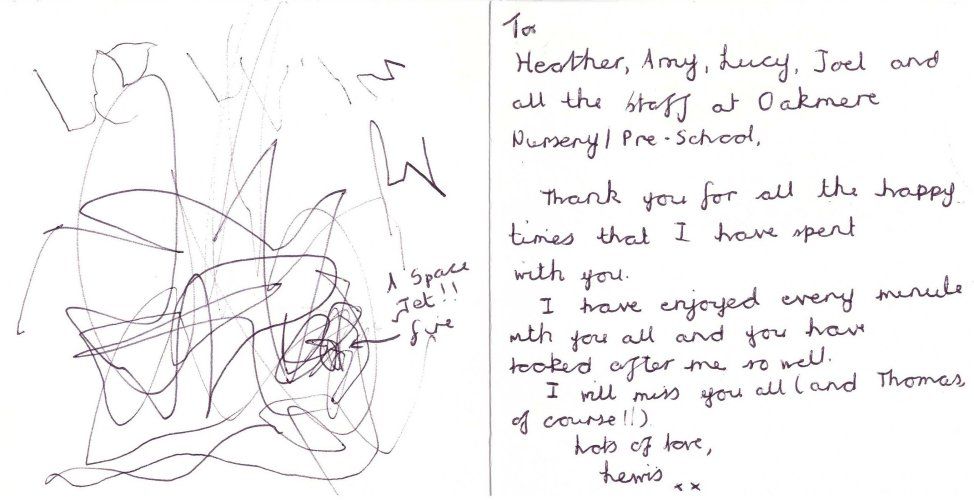 A Space
Jet!!
fire
To
Heather, Amy, Lucy, Joel and
all the staff at Oakmere
Nursery/Pre-School,
Thank you for all the happy
times that I have spent
with you.
I have enjoyed every minute
with you all and you have
looked after me so well.
I will miss you all (and Thomas,
of course!!)
Lots of love,
Lewis xx